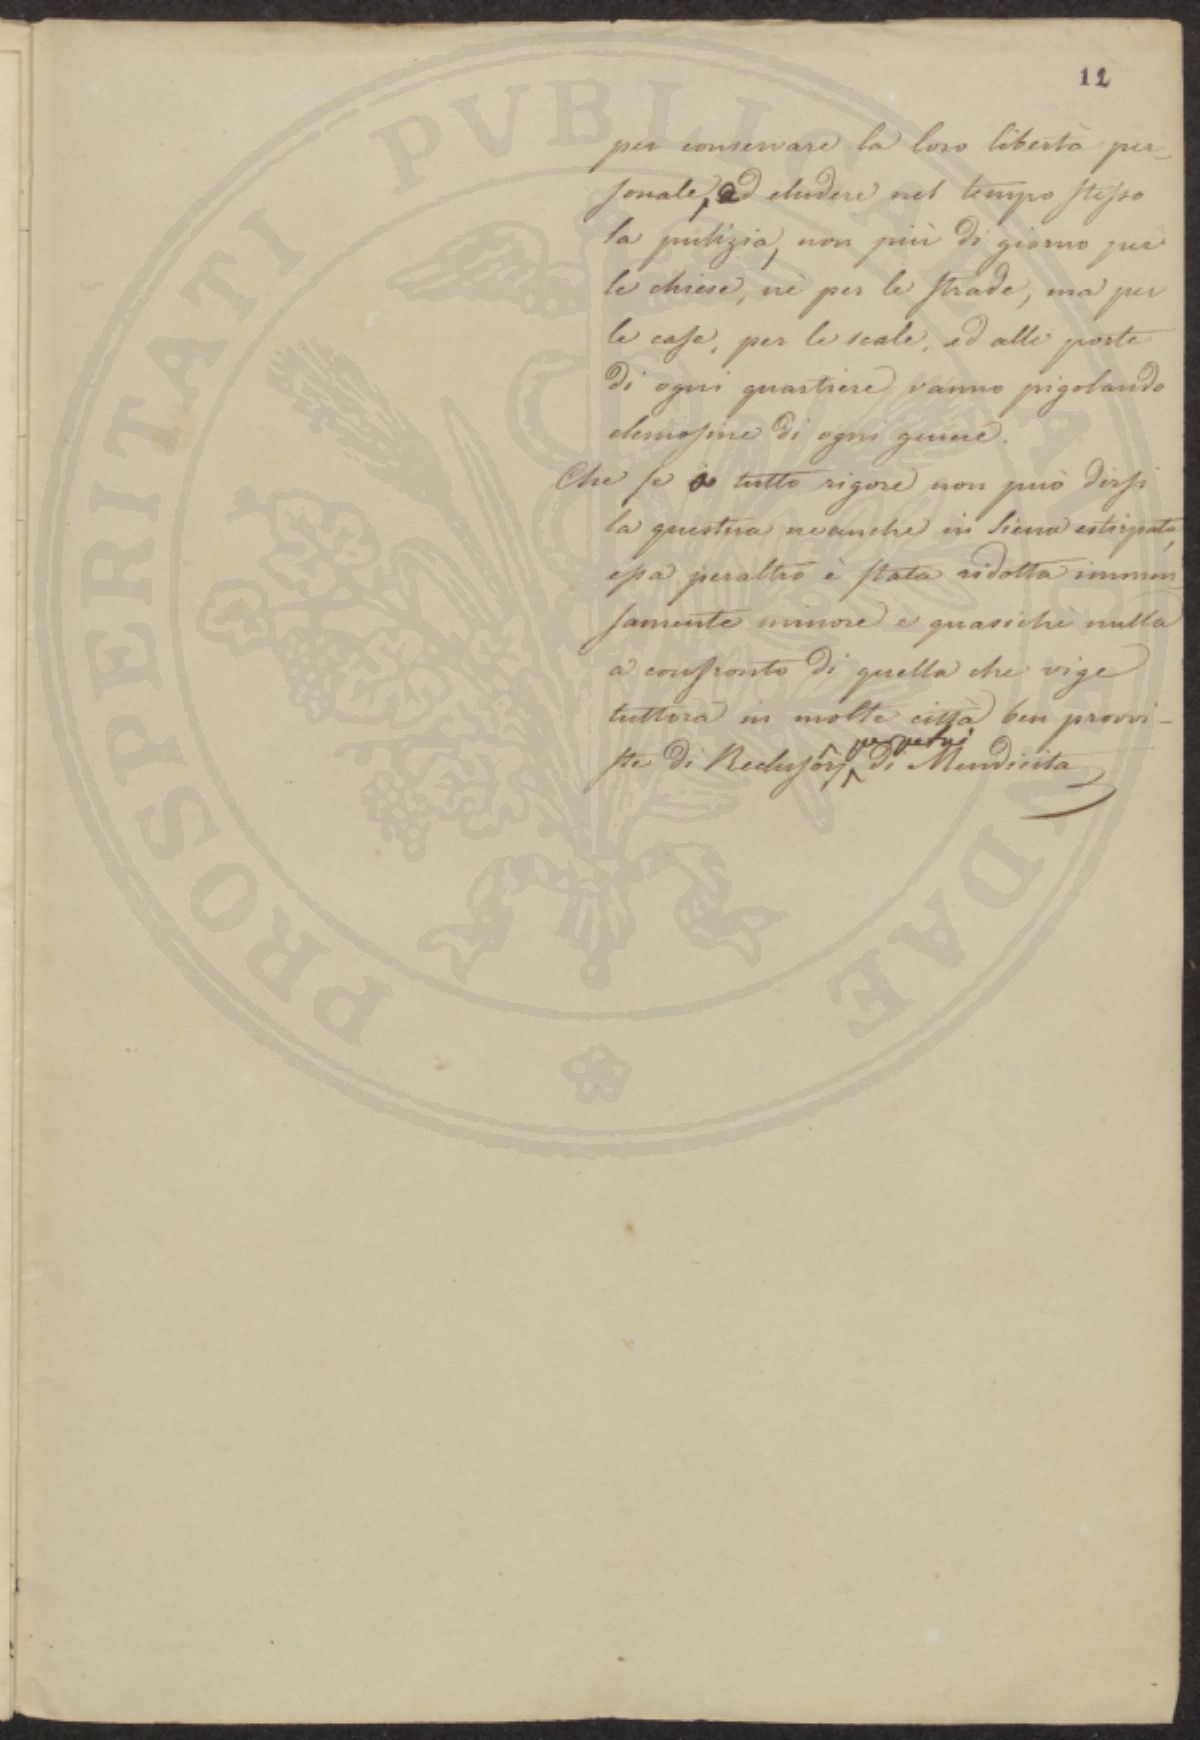 11
per conservare la loro libertà per-
sonale, ed eludere nel tempo stesso
la pulizia, non più di giorno per
le chiese, nè per le strade, ma per
le case, per le scale, ed alle porte
di ogni quartiere vanno pigolando
elemosine di ogni genere.
Che se a tutto rigore non può dirsi
la questua neanche in Siena estirpata,
essa peraltro è stata ridotta immen
samente minore e quasichè nulla
a confronto di quella che vige
tuttora in molte città ben provvi-
perpetui
ste di Reclusorj di Mendicità
PROSPERITATI PVBLICAE AVGENDAE